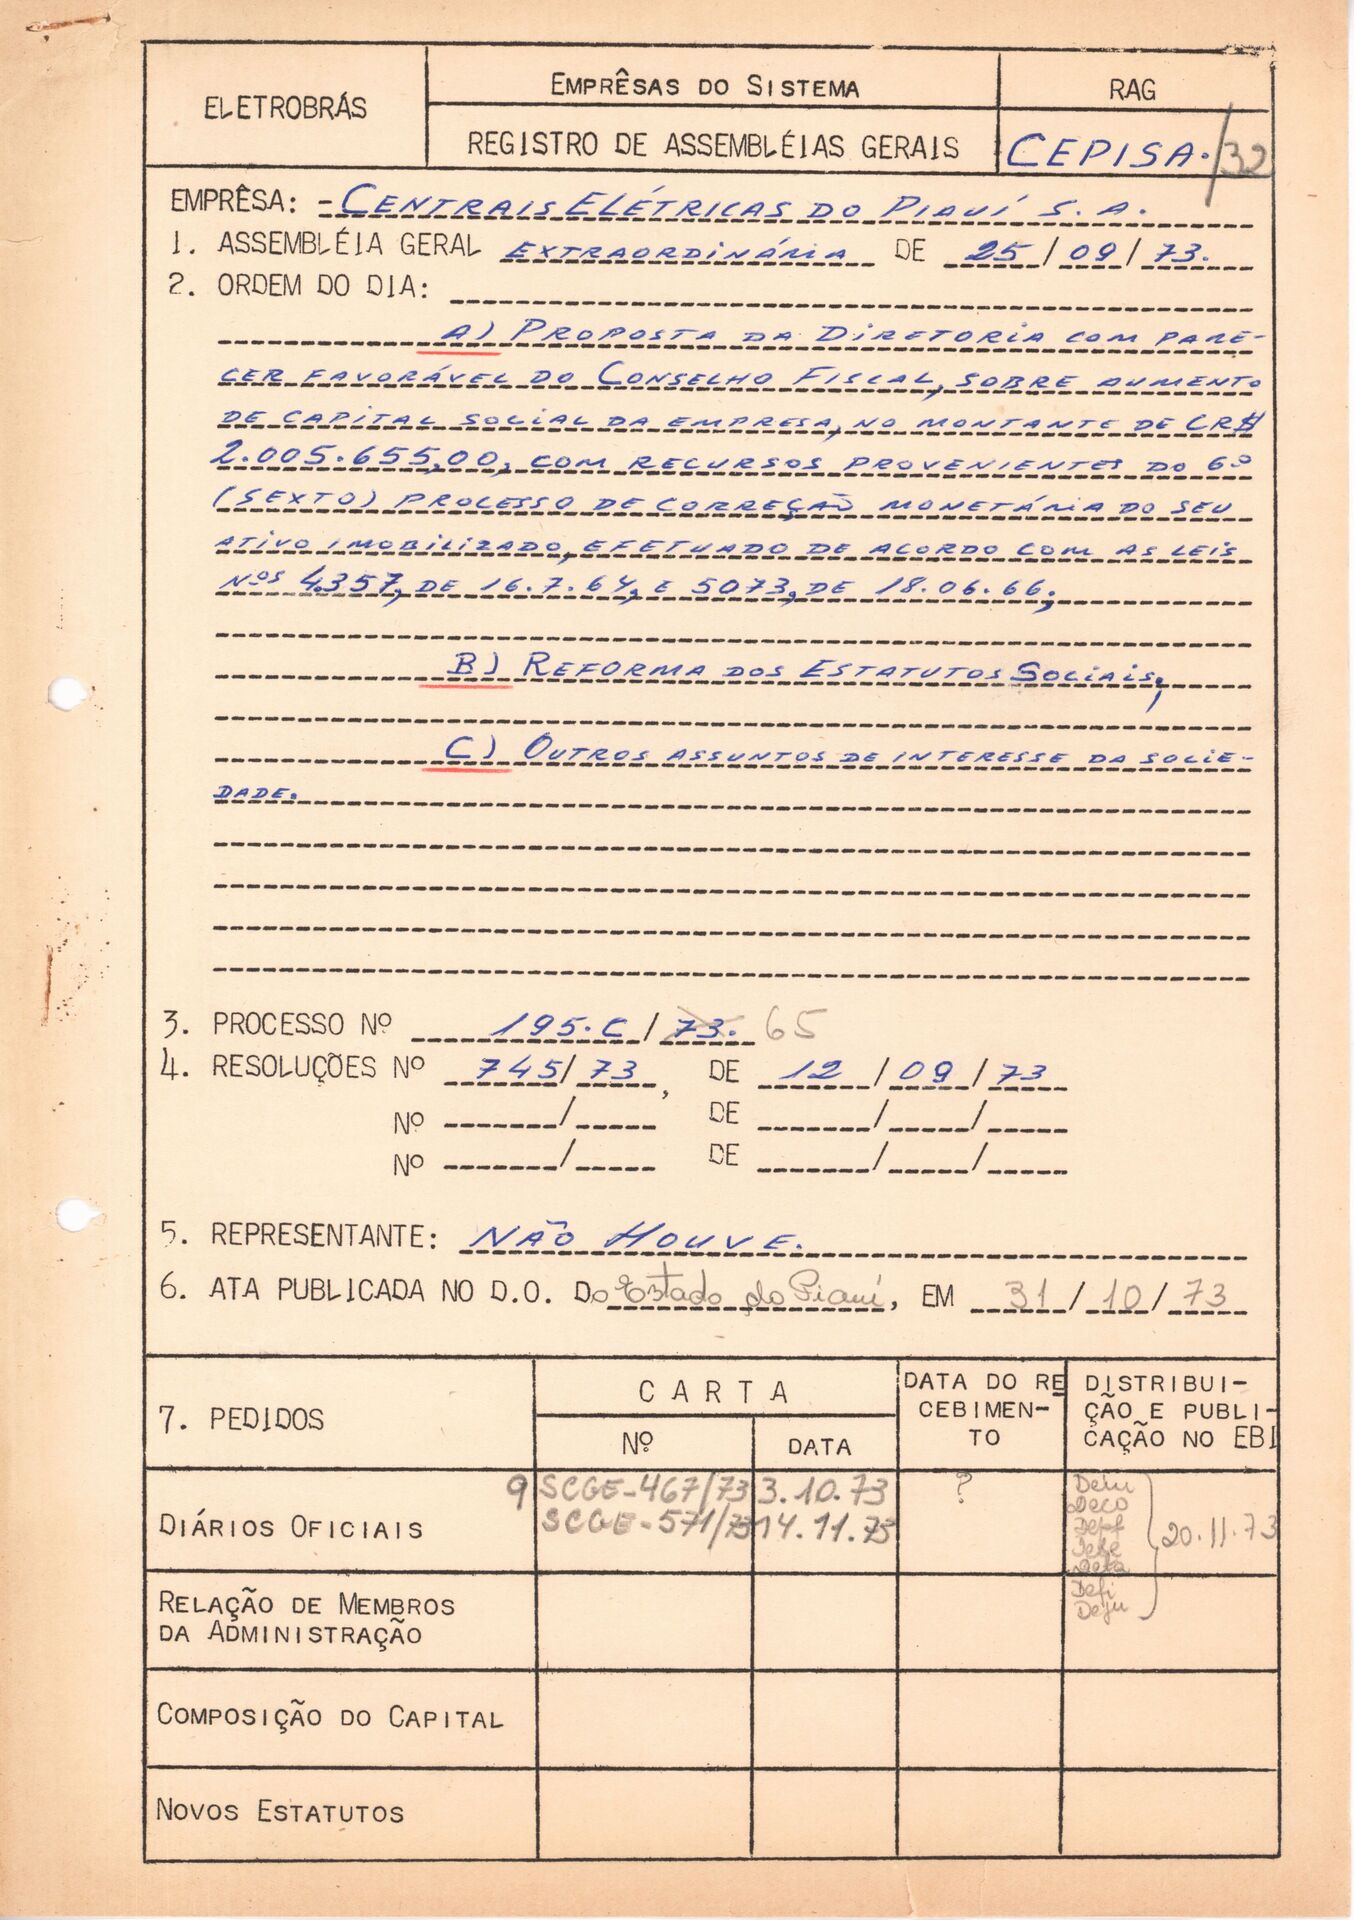 ELETROBRÁS
EMPRÊSAS DO SISTEMA
RAG
REGISTRO DE ASSEMBLÉIAS GERAIS
CEPISA./32
EMPRÊSA: - CENTRAIS ELÉTRICAS DO PIAUÍ S.A.
1. ASSEMBLÉIA GERAL EXTRAORDINÁRIA DE 25/09/73.
2. ORDEM DO DIA:
A) PROPOSTA DA DIRETORIA COM PARE-
CER FAVORÁVEL DO CONSELHO FISCAL, SOBRE AUMENTO
DE CAPITAL SOCIAL DA EMPRESA, NO MONTANTE DE CR$
2.005.655,00, COM RECURSOS PROVENIENTES DO 6º
(SEXTO) PROCESSO DE CORREÇÃO MONETÁRIA DO SEU
ATIVO IMOBILIZADO, EFETUADO DE ACORDO COM AS LEIS
NºS 4.357, DE 16.7.64, E 5073, DE 18.06.66;
B) REFORMA DOS ESTATUTOS SOCIAIS;
C) OUTROS ASSUNTOS DE INTERESSE DA SOCIE-
DADE.
3. PROCESSO Nº 195.C/73. 65
4. RESOLUÇÕES Nº 745/73, DE 12/09/73
Nº / DE / /
Nº / DE / /
5. REPRESENTANTE: NÃO HOUVE.
6. ATA PUBLICADA NO D.O. Do Estado do Piauí, EM 31/10/73
7. PEDIDOS
CARTA
Nº
DATA
DATA DO RE
CEBIMEN-
TO
DISTRIBUI-
ÇÃO E PUBLI-
CAÇÃO NO EBI
DIÁRIOS OFICIAIS
9 SCGE-467/73 3.10.73 ?
SCGE-571/73 14.11.73
Deco
Defi
Deju
20.11.73
RELAÇÃO DE MEMBROS
DA ADMINISTRAÇÃO
COMPOSIÇÃO DO CAPITAL
NOVOS ESTATUTOS